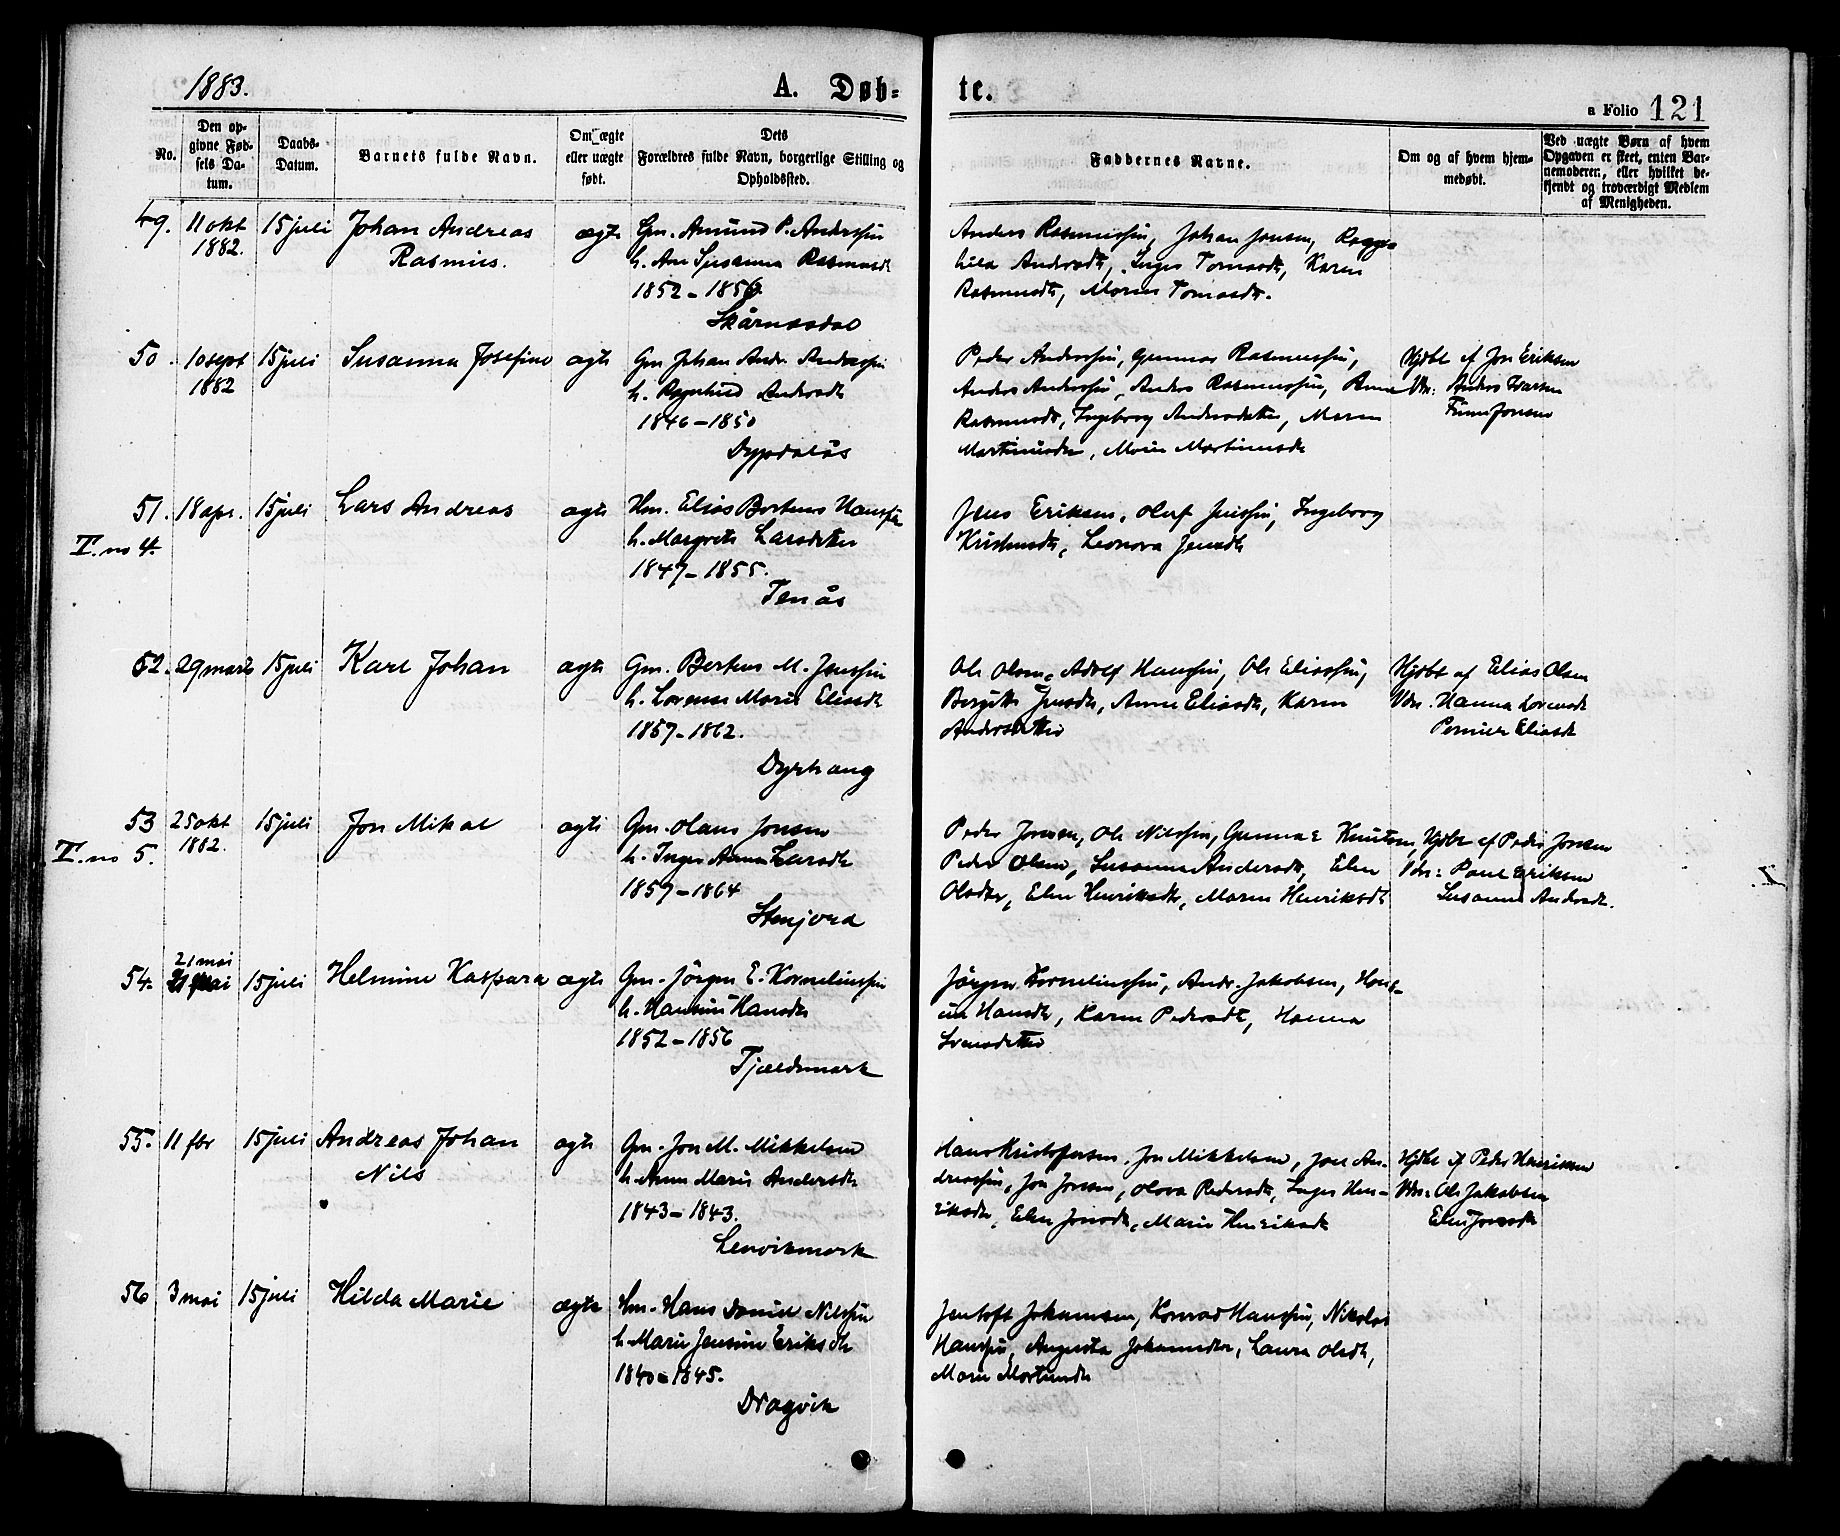 1883.
A. Døb-
te.
a Folio 121
No.
Den op-
givne Fød-
sels Da-
tum.
Daabs-
Datum.
Barnets fulde Navn.
Om ægte
eller uægte
født.
Dets
Forældres fulde Navn, borgerlige Stilling og
Opholdssted.
Faddernes Navne.
Om og af hvem hjem-
medøbt.
Ved uægte Børn af hvem
Opgaven er skeet, enten Bar-
nemoderen, eller hvilket be-
kjendt og troværdigt Medlem
af Menigheden.
49. 11 okt 15 juli Johan Andreas ægte Gm. Amund P. Anderssen
1882. Rasmus. h. Ane Susanna Rasmusdt
1852 - 1856
Skårnesdal
Anders Rasmussen, Johan Jonsen, Ragn-
hild Andersdt, Inger Tomasdt, Karen
Rasmusdt, Maren Tomasdt.
50. 10 sept 15 juli Susanna Josefine ægte Gm Johan Andr. Anderssen
1882 h. Ragnhild Andersdt
1846 - 1850
Dypdalås
Peder Anderssen, Gunnar Rasmussen,
Anders Anderssen, Anders Rasmussen, Anne
Rasmusdt, Ingeborg Andersdatter, Maren
Martinusdtr, Marie Martinusdt
Hjdbt af Jon Eriksen
Vdn: Anders Ivarsen
Finn Jonsen
51. 18 apr. 15 juli Lars Andreas ægte Hm. Elias Berteus Hanssen
II. no 4. h. Margrete Larsdatter
1847 - 1855.
Tenås
Jens Eriksen, Oluf Jenssen, Ingeborg
Leonora Jensdt
52. 29 marts 15 juli Karl Johan ægte Gm. Berteus M. Jenssen
h. Lorense Marie Eliasdt
1857 - 1862.
Dyrhaug
Ole Olsen, Adolf Hanssen, Ole Eliassen,
Bergitte Jensdt, Anne Eliasdt, Karen
Andersdatter
Hjdbt af Elias Olsen
Vdn. Hanna Lorensdt
Pernier Eliasdt
53 25 okt 15 juli Jon Mikal ægte Gm. Olaus Jonsen
1882.
II. no 5. h. Inger Anna Larsdt
1859 - 1864
Stenjord
Peder Jonsen, Ole Nilssen, Gunnar Knutsen,
Peder Olsen, Susanna Andersdt, Elen
Olsdtr, Elen Henriksdt, Maren Henriksdt
Hjdbt af Peder Jonsen
Vdn: Paul Eriksen
Susanna Andersdt.
54. 21 mai 15 juli Helmine Kaspara ægte Gm. Jörgen E. Korneliussen
h. Hansine Hansdt
1852 - 1856
Tjældemark
Jörgen Korneliussen, Andr. Jakobsen, Hans-
ine Hansdt, Karen Pedersdt, Hanna
55. 11 febr 15 juli Andreas Johan ægte Gm. Jon M. Mikkelsen
Nils h. Anne Marie Andersdt
1843 - 1843.
Lenvikmark
Hans Kristofersen. Jon Mikkelsen, Joel An-
drassen, Jon Jonsen, Olava Pedersdt, Inger Hen-
riksdt, Elen Jonsdt, Marie Henriksdt
Hjdbt af Peder Henriksen
Vdn: Ole Jakobsen
Elen Jonsdt
56 3 mai 15 juli Hilda Marie ægte Hm. Hans Daniel Nilssen
h. Marie Jensine Eriksdt
1840 - 1845.
Dragvik
Jentoft Johansen, Konrad Hanssen, Nikolai
Hanssen, Augusta Johannesdtr, Laura Olsdt,
Marie Mortensdt